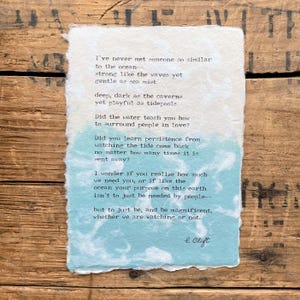 I've never met someone so similar
to the ocean—
strong like the waves yet
gentle as sea mist
deep, dark as the caverns
yet playful as tidepools
Did the water teach you how
to surround people in love?
Did you learn persistence from
watching the tide come back
no matter how many times it is
sent away?
I wonder if you realize how much
we need you, or if like the
ocean your purpose on this earth
isn't to just be needed by people—
but to just be, and be magnificent
whether we are watching or not.